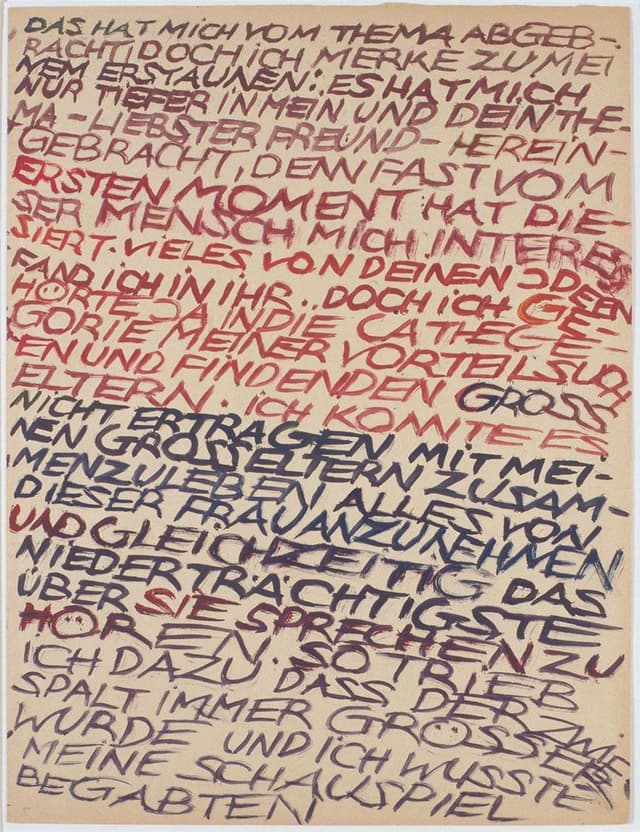 DAS HAT MICH VOM THEMA ABGEB-
RACHT, DOCH ICH MERKE ZU MEI
NEM ERSTAUNEN: ES HAT MICH
NUR TIEFER IN MEIN UND DEIN THE-
MA - LIEBSTER FREUND - HEREIN-
GEBRACHT, DENN FAST VOM
ERSTEN MOMENT HAT DIE-
SER MENSCH MICH INTERES
SIERT. VIELES VON DEINEN IDEEN
FAND ICH IN IHR. DOCH ICH GE-
HÖRTE JA IN DIE CATHEGE-
GORIE MEINER VORTEILSUCH
EN UND FINDENDEN GROSS
ELTERN. ICH KONNTE ES
NICHT ERTRAGEN MIT MEI-
NEN GROSSELTERN ZUSAM-
MENZULEBEN ALLES VON
DIESER FRAU ANZUNEHMEN
UND GLEICHZEITIG DAS
NIEDERTRÄCHTIGSTE
ÜBER SIE SPRECHEN ZU
HÖREN. SO TRIEB
ICH DAZU DASS DER ZWIE
SPALT IMMER GRÖSSER
WURDE UND ICH WUSSTE
MEINE SCHAUSPIEL
BEGABTEN